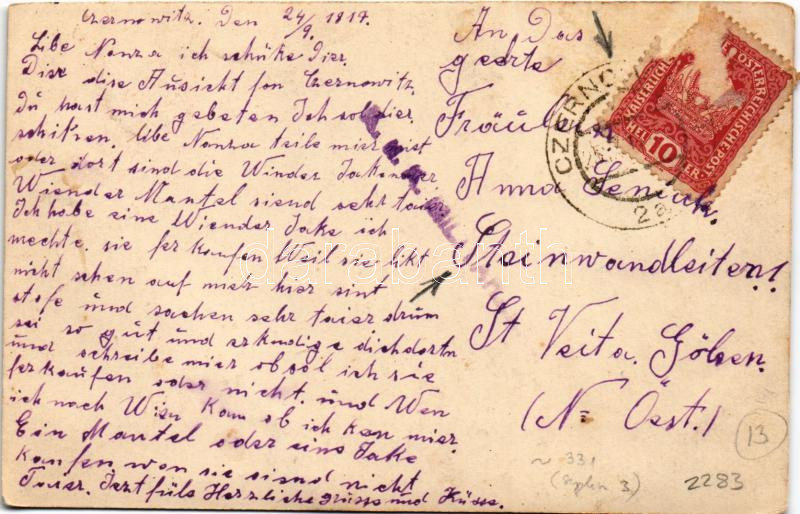 Czernowitz. Den 24/9. 1917.
Libe Nanza ich schüke Dier
Dise die Aussicht fon Czernowitz
Du hast mich gebeten Ich sol dier
schiken. libe Nanza teile mir mist
oder dort sind die Winder Jaken der
Wiender Mantel siend sehr taier
Ich habe eine Wiender Jake ich
mechte sie ferkaufen Weil sie likt
nicht schen auf mier hier sint
stofe und sachen sehr taier drum
sei so gut und erkundige dich dortn
und schreibe mier ob sol ich sie
ferkaufen oder nicht. und Wen
ich nach Wien kom ob ich ken mier
Ein Mantel oder eine Jake
kaufen wen sie siend nicht
Taier. Jezt füls Herzliche grüsse und Küsse.
An Das
geerte
Fräul
Anna
Steinwandleiten!
St Veit a. Gölsen.
(N= Öst.)
CZERNO
KAISERLICH
ÖSTERREICHISCHE POST
10
HELLER
darabanth
13
~ 331
2283